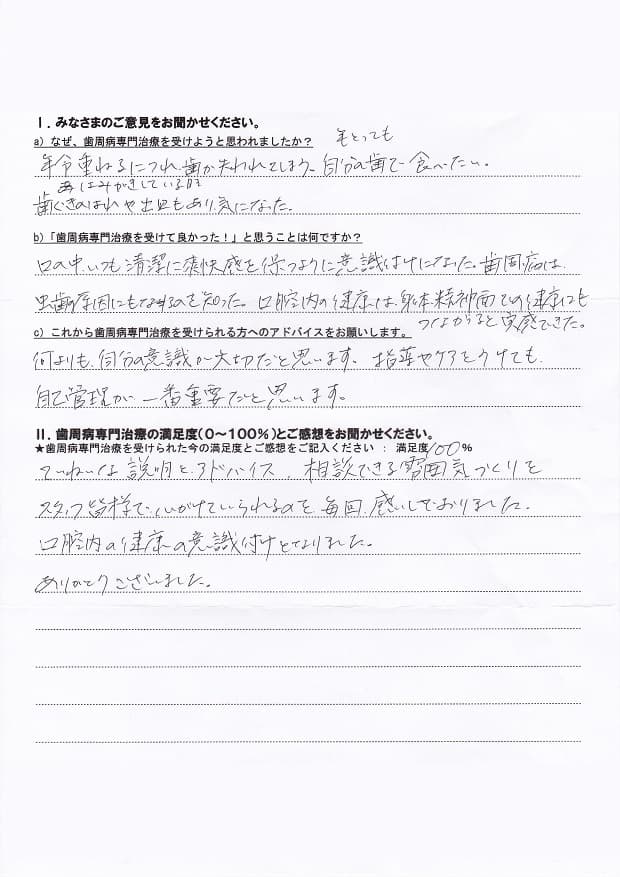 Ⅰ. みなさまのご意見をお聞かせください。
a) なぜ、歯周病専門治療を受けようと思われましたか?
年とっても
年令重ねるにつれ、歯が失われてしまう、自分の歯で食べたい。
はみがきしている時
歯ぐきのはれや出血もあり、気になった。
b)「歯周病専門治療を受けて良かった!」と思うことは何ですか?
口の中、いつも清潔に爽快感を保つように意識付けになった。歯周病は、
虫歯の原因にもなるのを知った。口腔内の健康は、身体、精神面での健康にも
つながると実感できた。
c) これから歯周病専門治療を受けられる方へのアドバイスをお願いします。
何よりも、自分の意識が大切だと思います。指導やケアをうけても、
自己管理が一番重要だと思います。
Ⅱ. 歯周病専門治療の満足度(0～100%)とご感想をお聞かせください。
★歯周病専門治療を受けられた今の満足度とご感想をご記入ください : 満足度 100 %
ていねいな説明と、アドバイス、相談できる雰囲気づくりを
スタッフ皆様で、心がけていられるのを毎回、感じておりました。
口腔内の健康の意識付けとなりました。
ありがとうございました。